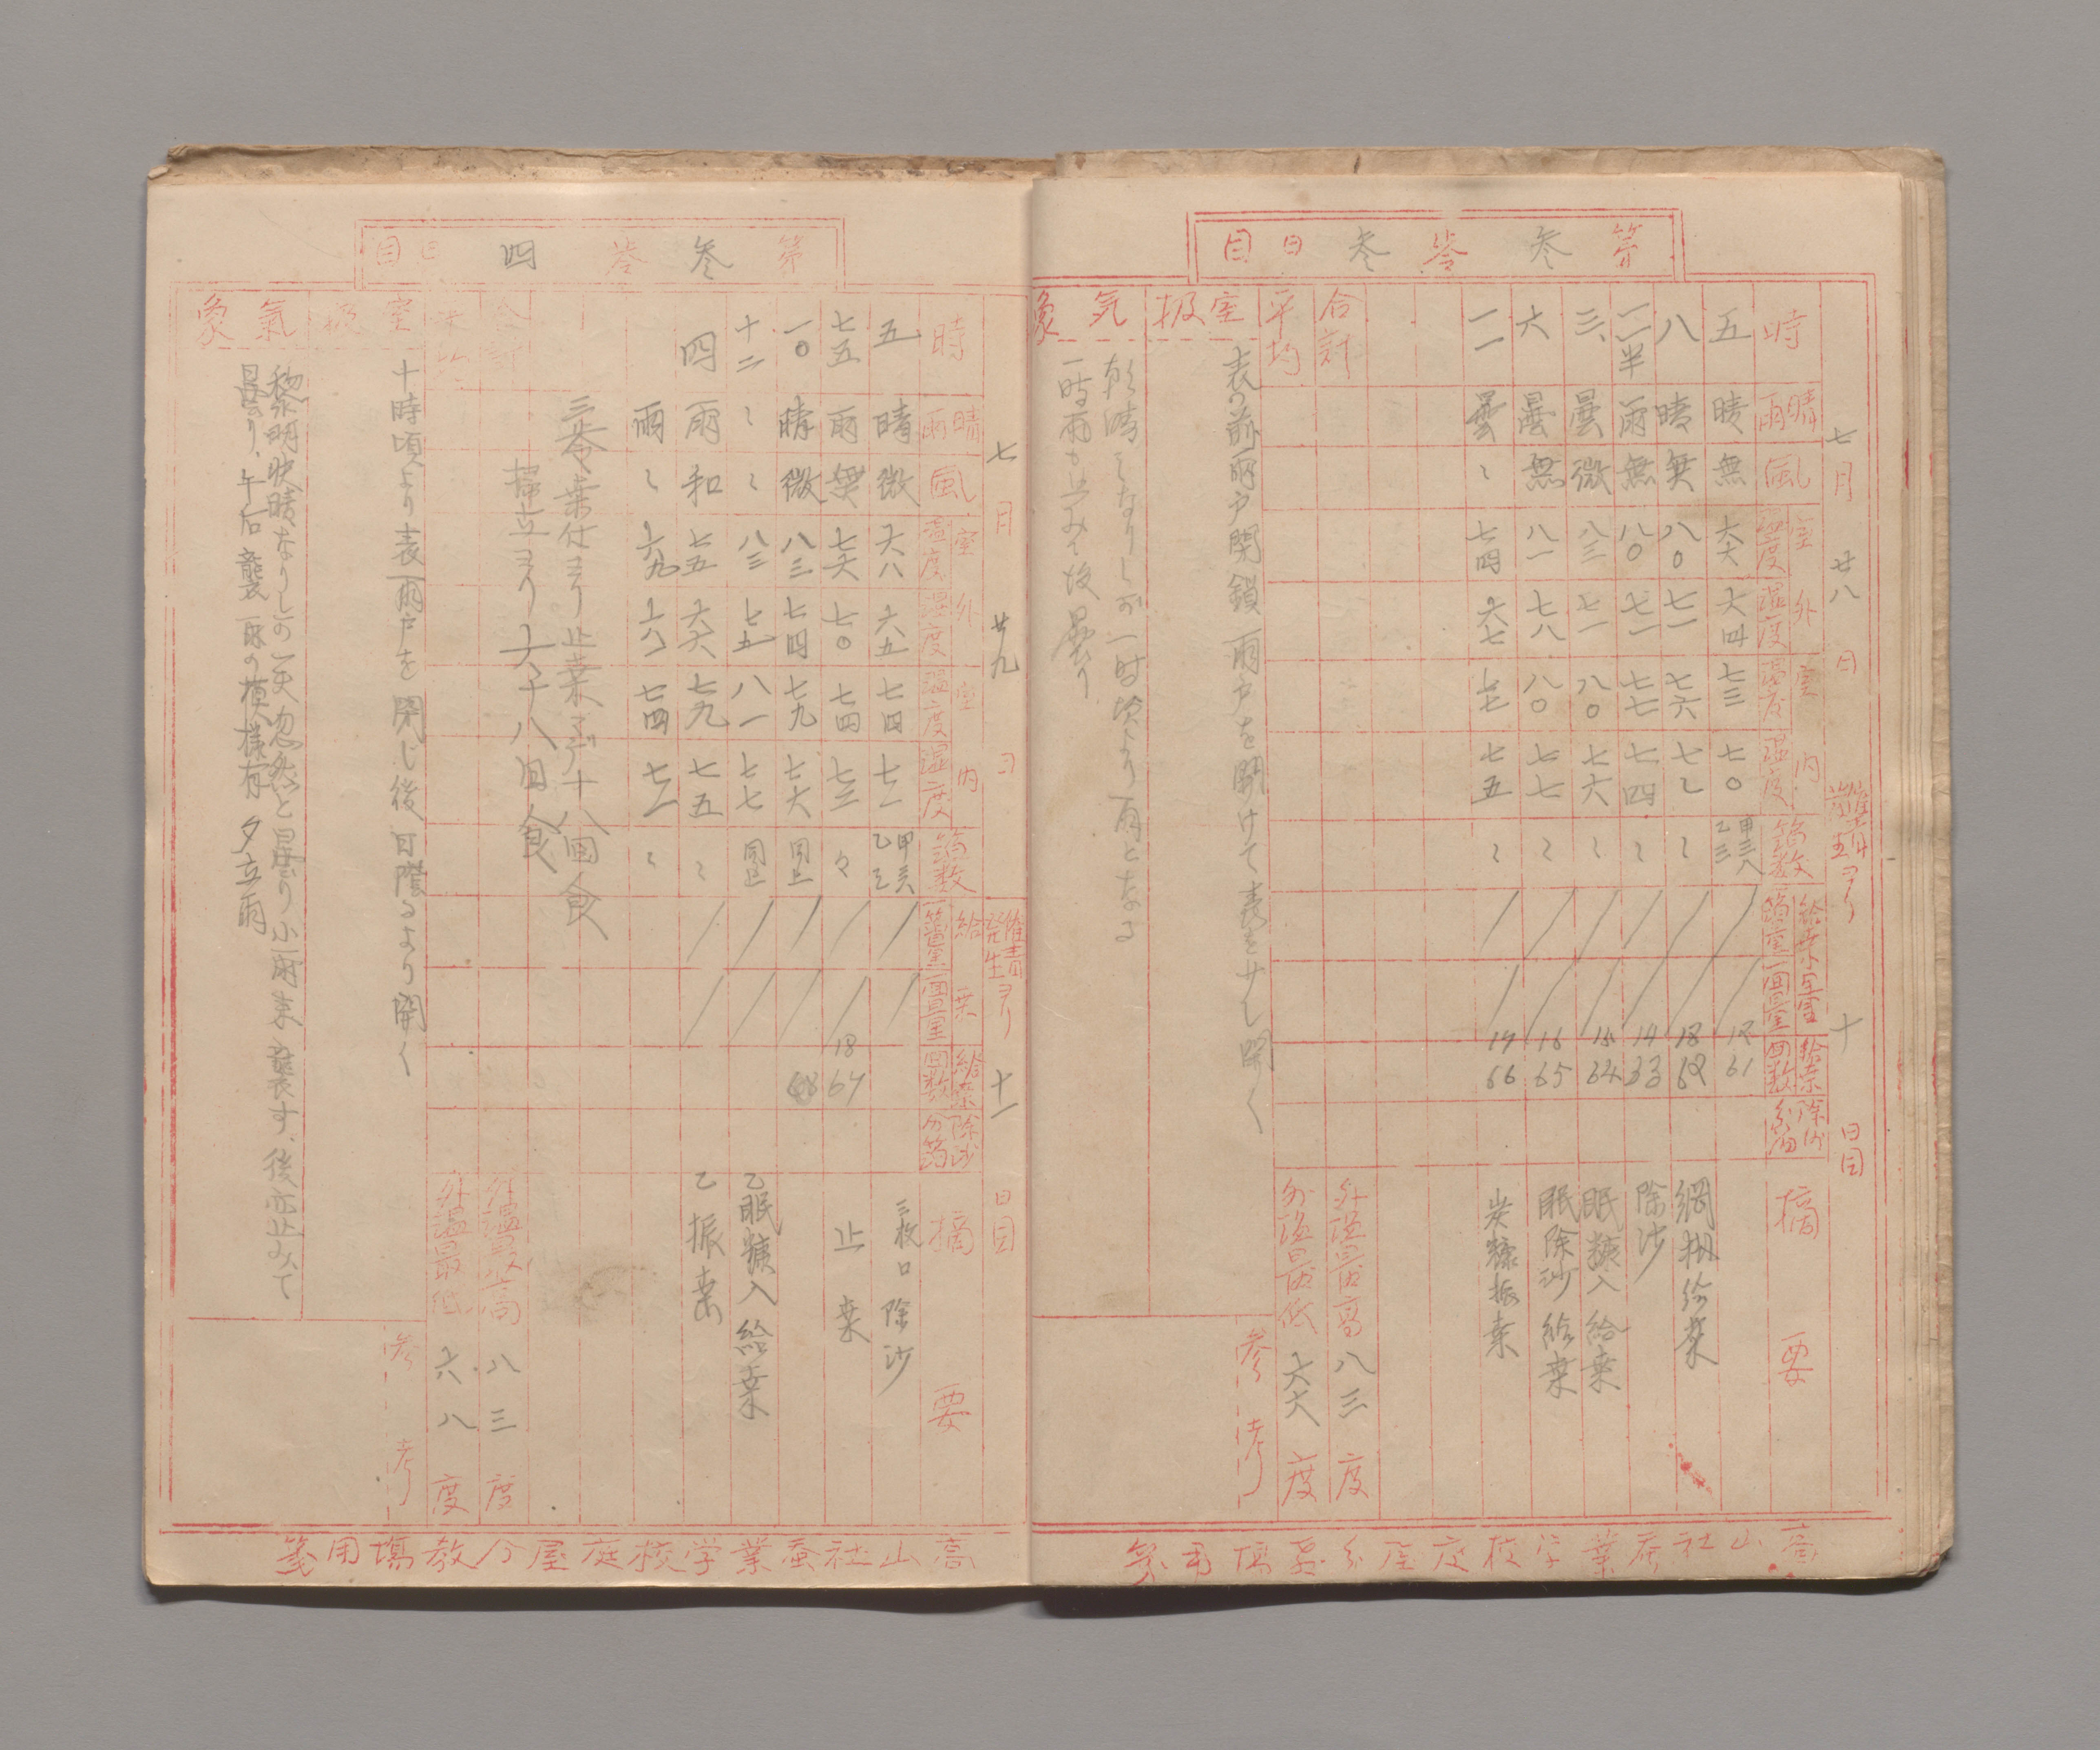 第参令参日目
七月廿八日
十日目
時 五 八 一一半 三、 六 一一 合計 平均
晴雨 晴 晴 雨 曇 曇 曇
風 無 無 無 微 無 〻
室外
温度 六六 八〇 八〇 八三 八一 七四
湿度 六四 七一 七一 七一 七八 六七
室内
温度 七三 七六 七七 八〇 八〇 七七
湿度 七〇 七七 七四 七六 七七 七五
箔数 甲三八 乙三 〻 〻 〻 〻 〻
給桑量
箔量
一回量
給桑回数 61 62 63 64 65 66
除沙分箔
摘要
網掛給桑
除沙
眠糠入給桑
眠除沙給桑
炭糠振桑
外温最高 八三度
外温最低 六六度
参考
室扱
表の前雨戸閉鎖雨戸を開けて表を少し開く
気象
一時雨も止みて後曇り
高山社蚕業学校庭屋分教場用箋
第参令四日目
七月廿九日
十一日目
時 五 七五 一〇 十二 四
晴雨 晴 雨 晴 〻 雨 雨
風 微 無 微 〻 和 〻
室外
温度 六八 七六 八三 八三 七五 六九
湿度 六五 七〇 七四 七五 六六 六八
室内
温度 七四 七四 七九 八一 七九 七四
湿度 七一 七三 七六 七七 七五 七一
箔数
給桑
箔量
一回量
給桑回数 18 67 68
除沙分箔
摘要
三枚口除沙
止桑
乙眠糠入給桑
乙振桑
三令桑付ヨリ止桑マデ十八回食
掃立ヨリ六十八回食
合計
平均
外温最高 八三度
外温最低 六八度
参考
室扱
十時頃より表雨戸を閉じ後日陰るより開く
氣象
黎明快晴なりしの一天忽然と曇り小雨来襲す、後亦止みて
曇り、午后襲雨の模様有 夕立雨
高山社蚕業学校庭屋分教場用箋